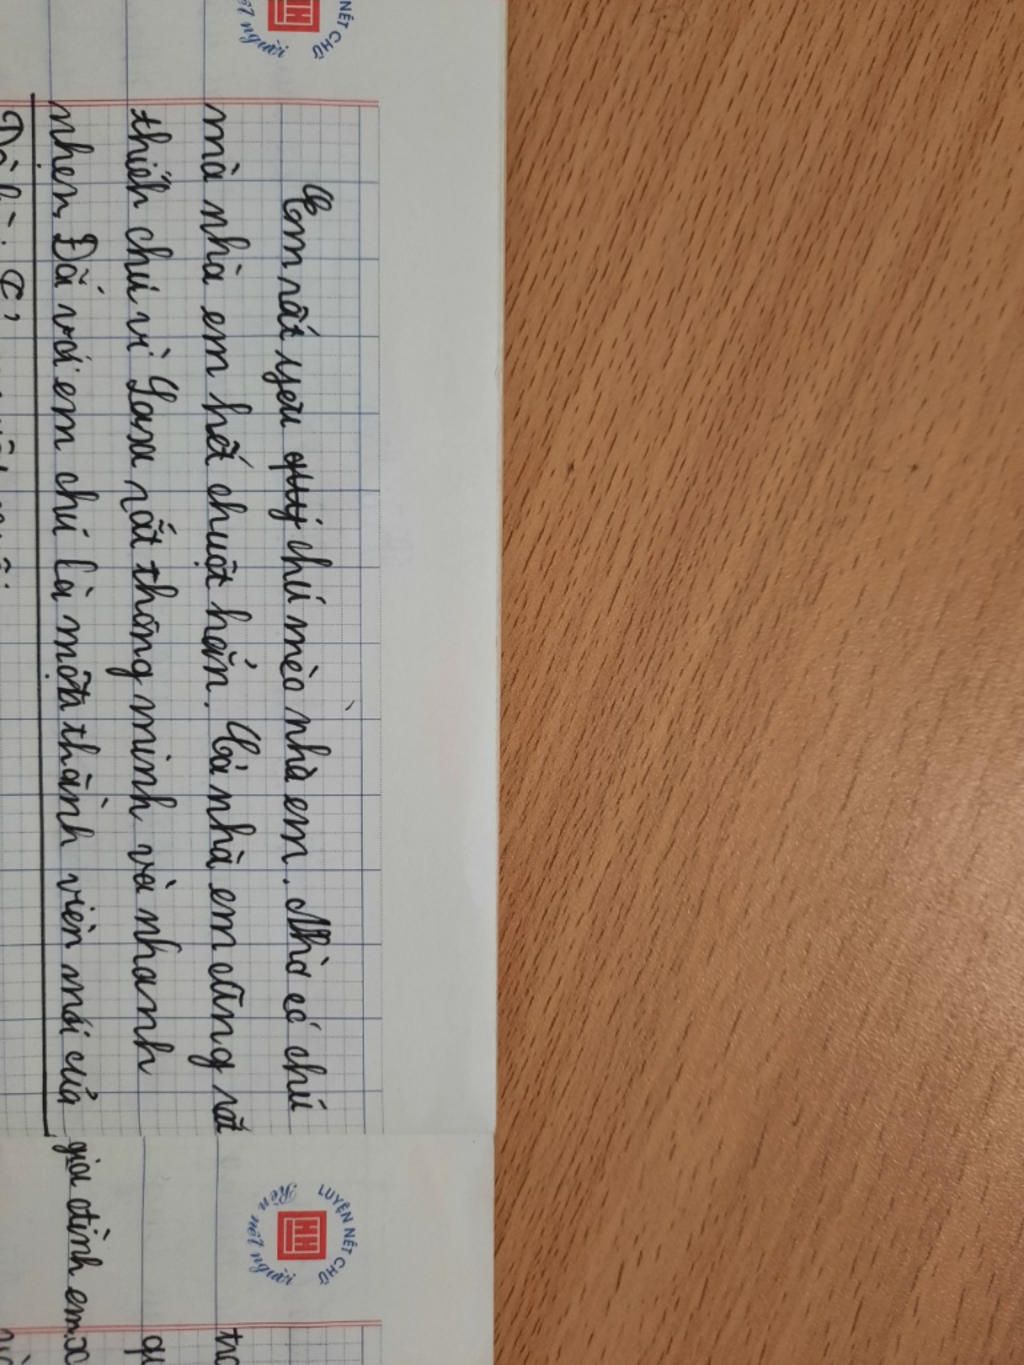 NÉT CHỮ
nét người
Em rất yêu quý chú mèo nhà em. Nhờ có chú
mà nhà em hết chuột hẳn. Cả nhà em cũng rất
thích chú vì Lau rất thông minh và nhanh
nhẹn. Đối với em chú là một thành viên mới của gia đình em.
LUYỆN NÉT CHỮ
Rèn nét người
HH